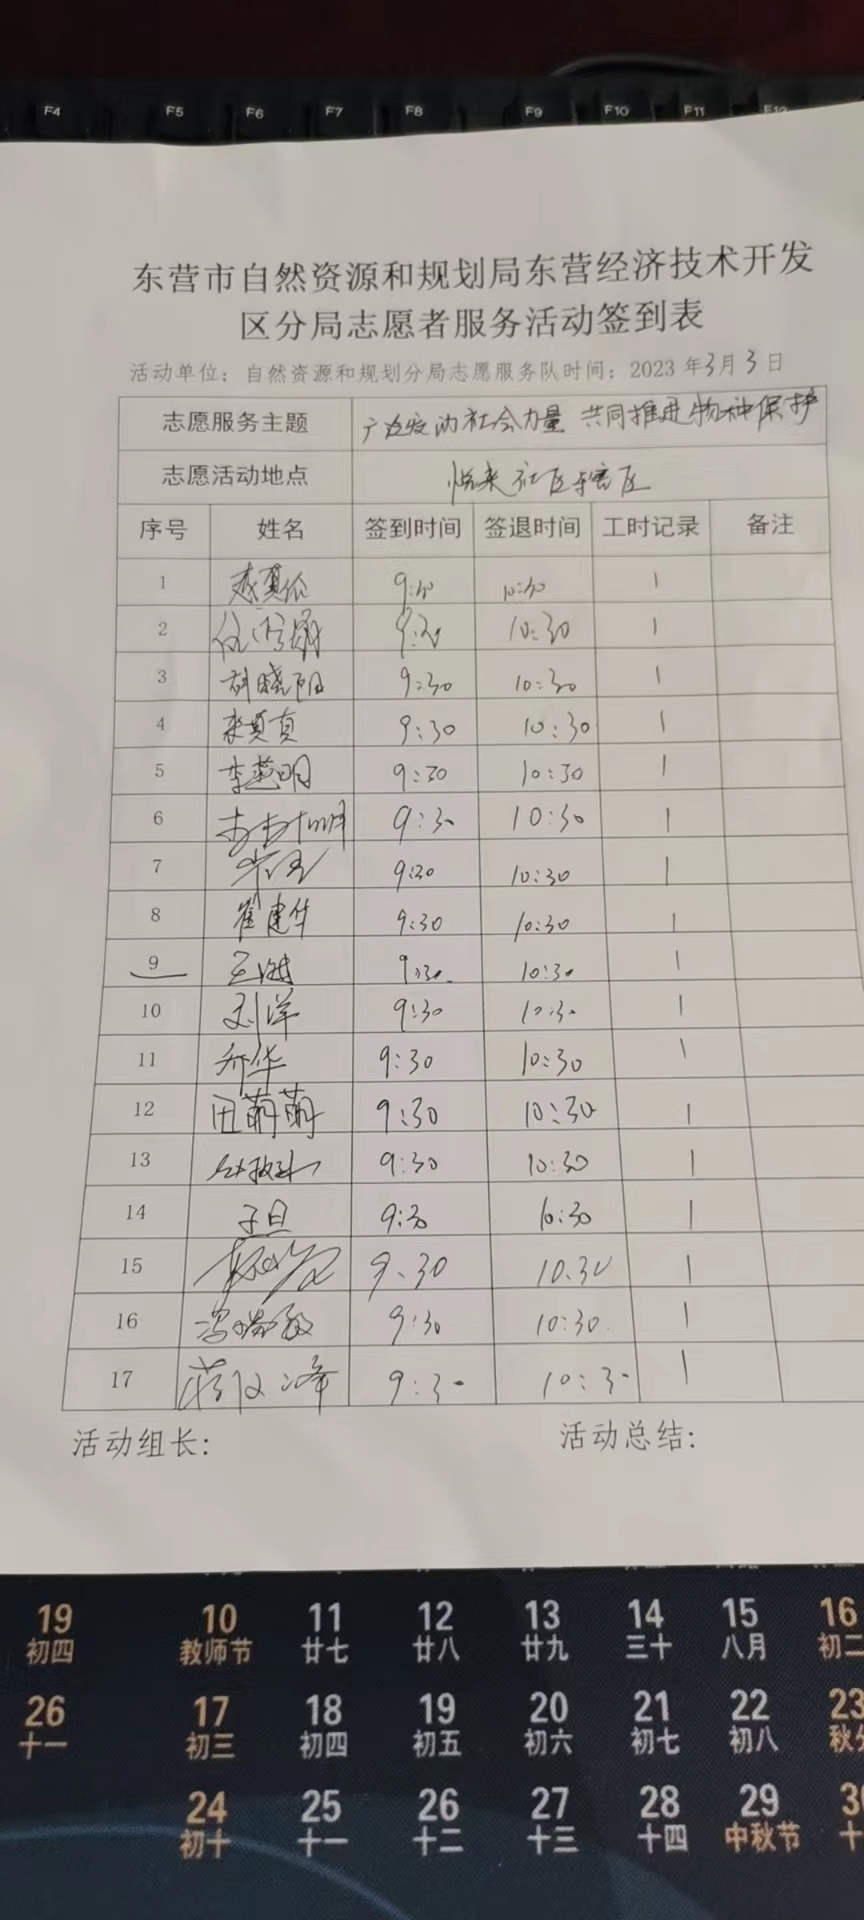 F4 F5 F6 F7 F8 F9 F10 F11 F12
东营市自然资源和规划局东营经济技术开发
区分局志愿者服务活动签到表
活动单位：自然资源和规划分局志愿服务队时间：2023 年3月3日
志愿服务主题 社会力量 共同推进物种保护
志愿活动地点 悦来社区辖区
序号 姓名 签到时间 签退时间 工时记录 备注
1 9:30 10:30 1
2 9:30 10:30 1
3 胡晓阳 9:30 10:30 1
4 9:30 10:30 1
5 李慧明 9:30 10:30 1
6 9:30 10:30 1
7 9:30 10:30 1
8 崔建华 9:30 10:30 1
9 9:30 10:30 1
10 刘洋 9:30 10:30 1
11 乔华 9:30 10:30 1
12 田萌萌 9:30 10:30 1
13 9:30 10:30 1
14 9:30 10:30 1
15 9.30 10.30 1
16 9:30 10:30 1
17 9:30 10:30 1
活动组长: 活动总结:
19 10 11 12 13 14 15 16
初四 教师节 廿七 廿八 廿九 三十 八月 初二
26 17 18 19 20 21 22 23
十一 初三 初四 初五 初六 初七 初八
24 25 26 27 28 29
初十 十一 十二 十三 十四 中秋节